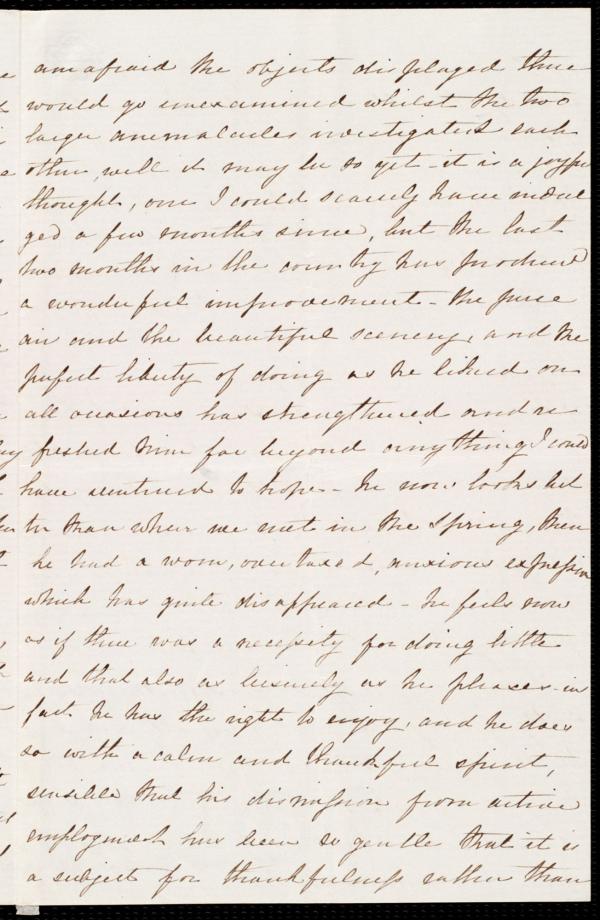 am afraid the objects displayed there
would go unexamined whilst the two
larger anemalcules investigated each
other, well it may be so yet - it is a joyful
thought, one I could scarcely have indul
ged a few months since, but the last
two months in the country has produced
a wonderful improvement - the pure
air and the beautiful scenery, and the
perfect liberty of doing as he liked on
all occasions has strengthened and re
freshed him far beyond anything I could
have ventured to hope - he now looks bet
ter than when we met in the Spring, then
he had a worn, overtaxed, anxious expression
which has quite disappeared - he feels now
as if there was a necessity for doing little
and that also as leisurely as he pleases - in
fact he has the right to enjoy, and he does
so with a calm and thankful spirit,
sensible that his dismission from active
employment has been so gentle that it is
a subject for thankfulness rather than